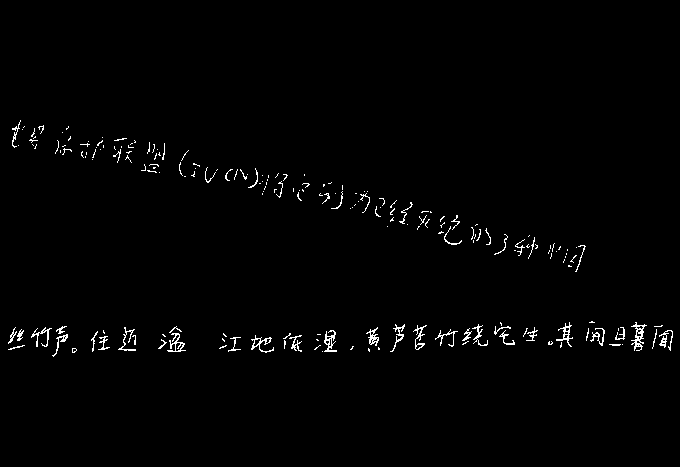 世界保护联盟(IUCN)将它列为已经灭绝的3种中国
丝竹声。住近湓江地低湿,黄芦苦竹绕宅生。其间旦暮闻